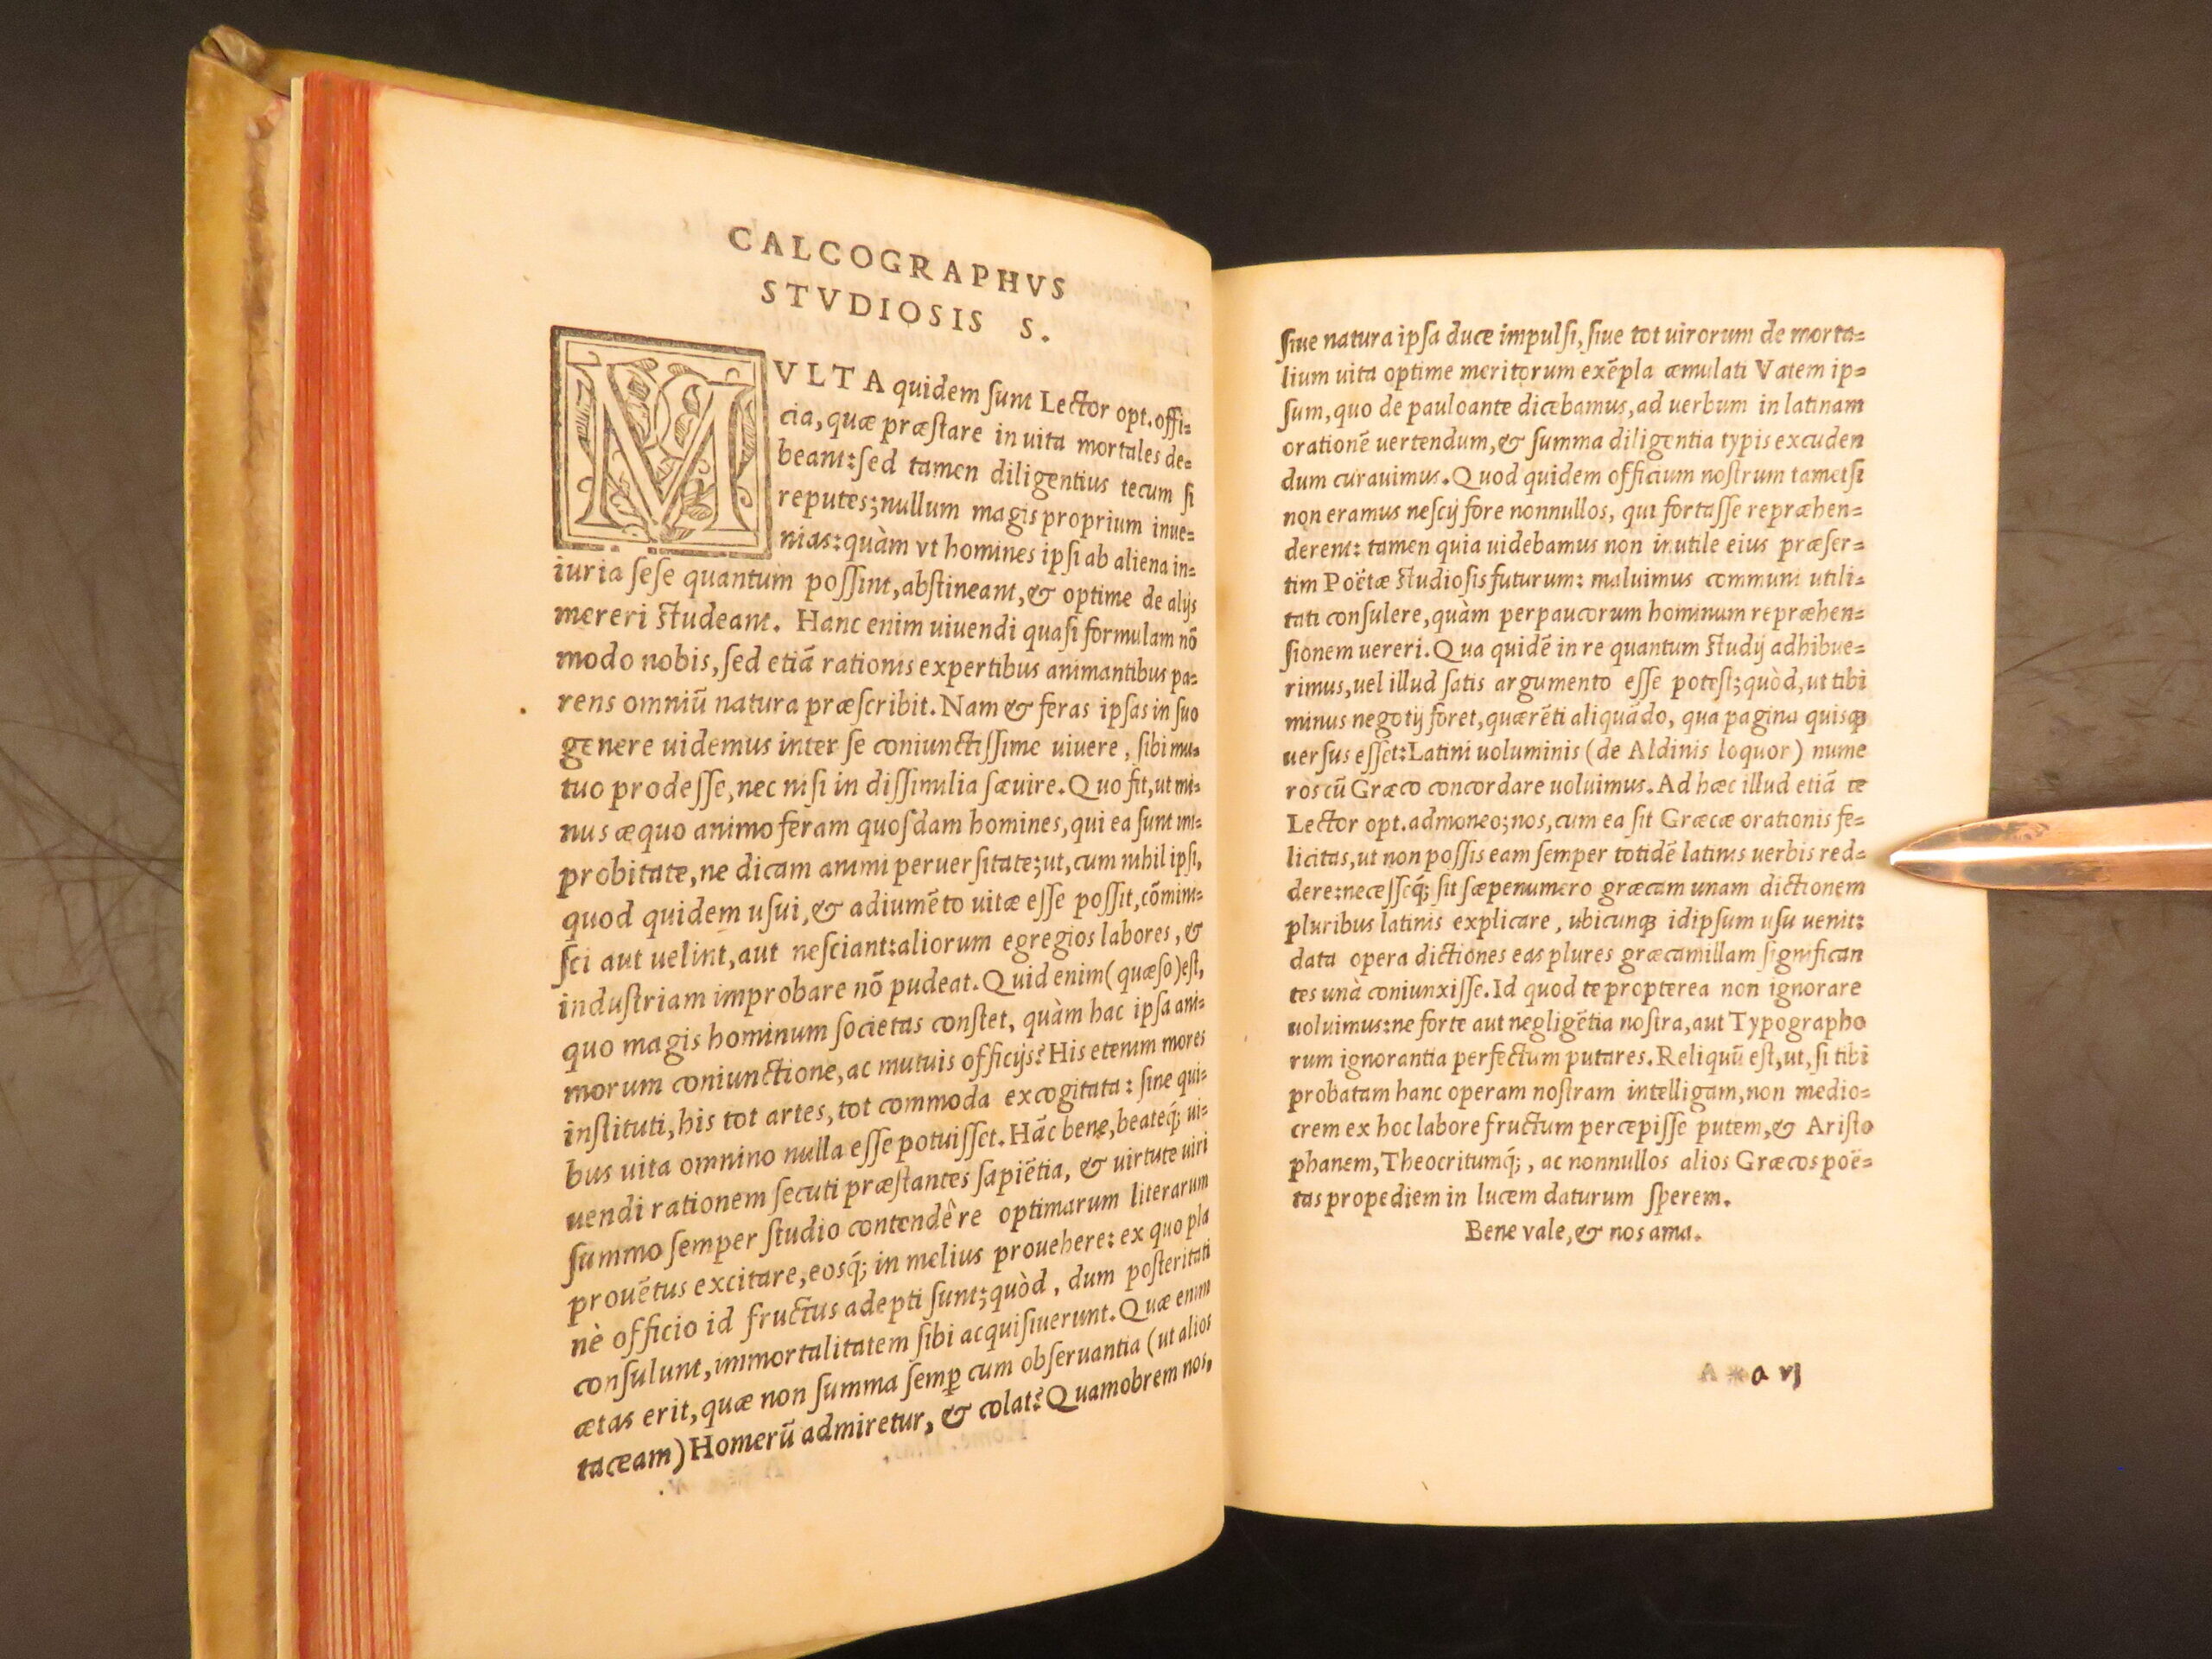 CALCOGRAPHVS
STVDIOSIS S.
MVLTA quidem ſunt Lector opt. offi-
cia, quæ præſtare in uita mortales de-
beant: ſed tamen diligentius tecum ſi
reputes; nullum magis proprium inue-
nias: quàm vt homines ipſi ab aliena in-
iuria ſeſe quantum poſſint, abſtineant, & optime de alijs
mereri ſtudeant. Hanc enim uiuendi quaſi formulam nō
modo nobis, ſed etiā rationis expertibus animantibus pa-
rens omniū natura præſcribit. Nam & feras ipſas in ſuo
genere uidemus inter ſe coniunctiſſime uiuere, ſibi mu-
tuo prodeſſe, nec niſi in diſſimilia ſæuire. Quo fit, ut mi-
nus æquo animo feram quoſdam homines, qui ea ſunt im-
probitate, ne dicam animi peruerſitate; ut, cum nihil ipſi,
quod quidem uſui, & adiumēto uitæ eſſe poſſit, cōmini-
ſci aut uelint, aut neſciant: aliorum egregios labores, &
induſtriam improbare nō pudeat. Quid enim (quæſo) eſt,
quo magis hominum ſocietas conſtet, quàm hac ipſa ani-
morum coniunctione, ac mutuis officijs? His etenim mores
inſtituti, his tot artes, tot commoda excogitata: ſine qui-
bus uita omnino nulla eſſe potuiſſet. Hāc bene, beateq́; ui-
uendi rationem ſecuti præſtantes ſapiētia, & uirtute uiri
ſummo ſemper ſtudio contendêre optimarum literarum
prouētus excitare, eosq́; in melius prouehere: ex quo pla
nè officio id fructus adepti ſunt; quòd, dum poſteritati
conſulunt, immortalitatem ſibi acquiſiuerunt. Quæ enim
ætas erit, quæ non ſumma ſemꝑ cum obſeruantia (ut alios
taceam) Homerū admiretur, & colat? Quamobrem nos,
ſiue natura ipſa duce impulſi, ſiue tot uirorum de morta-
lium uita optime meritorum exēpla æmulati Vatem ip-
ſum, quo de pauloante dicebamus, ad uerbum in latinam
orationē uertendum, & ſumma diligentia typis excuden
dum curauimus. Quod quidem officium noſtrum tametſi
non eramus neſcij fore nonnullos, qui fortaſſe repræhen-
derent: tamen quia uidebamus non inutile eius præſer-
tim Poëtæ ſtudioſis futurum: maluimus communi utili-
tati conſulere, quàm perpaucorum hominum repræhen-
ſionem uereri. Qua quidē in re quantum ſtudij adhibue-
rimus, uel illud ſatis argumento eſſe poteſt; quòd, ut tibi
minus negotij foret, quærēti aliquādo, qua pagina quisqꝫ
uerſus eſſet: Latini uoluminis (de Aldinis loquor) nume
ros cū Græco concordare uoluimus. Ad hæc illud etiā te
Lector opt. admoneo; nos, cum ea ſit Græcæ orationis fe-
licitas, ut non poſſis eam ſemper totidē latinis uerbis red-
dere: neceſſeq́; ſit ſæpenumero græcam unam dictionem
pluribus latinis explicare, ubicunqꝫ id ipſum uſu uenit:
data opera dictiones eas plures græcam illam ſignifican
tes unà coniunxiſſe. Id quod te propterea non ignorare
uoluimus: ne forte aut negligētia noſtra, aut Typographo
rum ignorantia perfectum putares. Reliquū eſt, ut, ſi tibi
probatam hanc operam noſtram intelligam, non medio-
crem ex hoc labore fructum percepiſſe putem, & Ariſto
phanem, Theocritumq́;, ac nonnullos alios Græcos poë-
tas propediem in lucem daturum ſperem.
Bene vale, & nos ama.
A * a vj